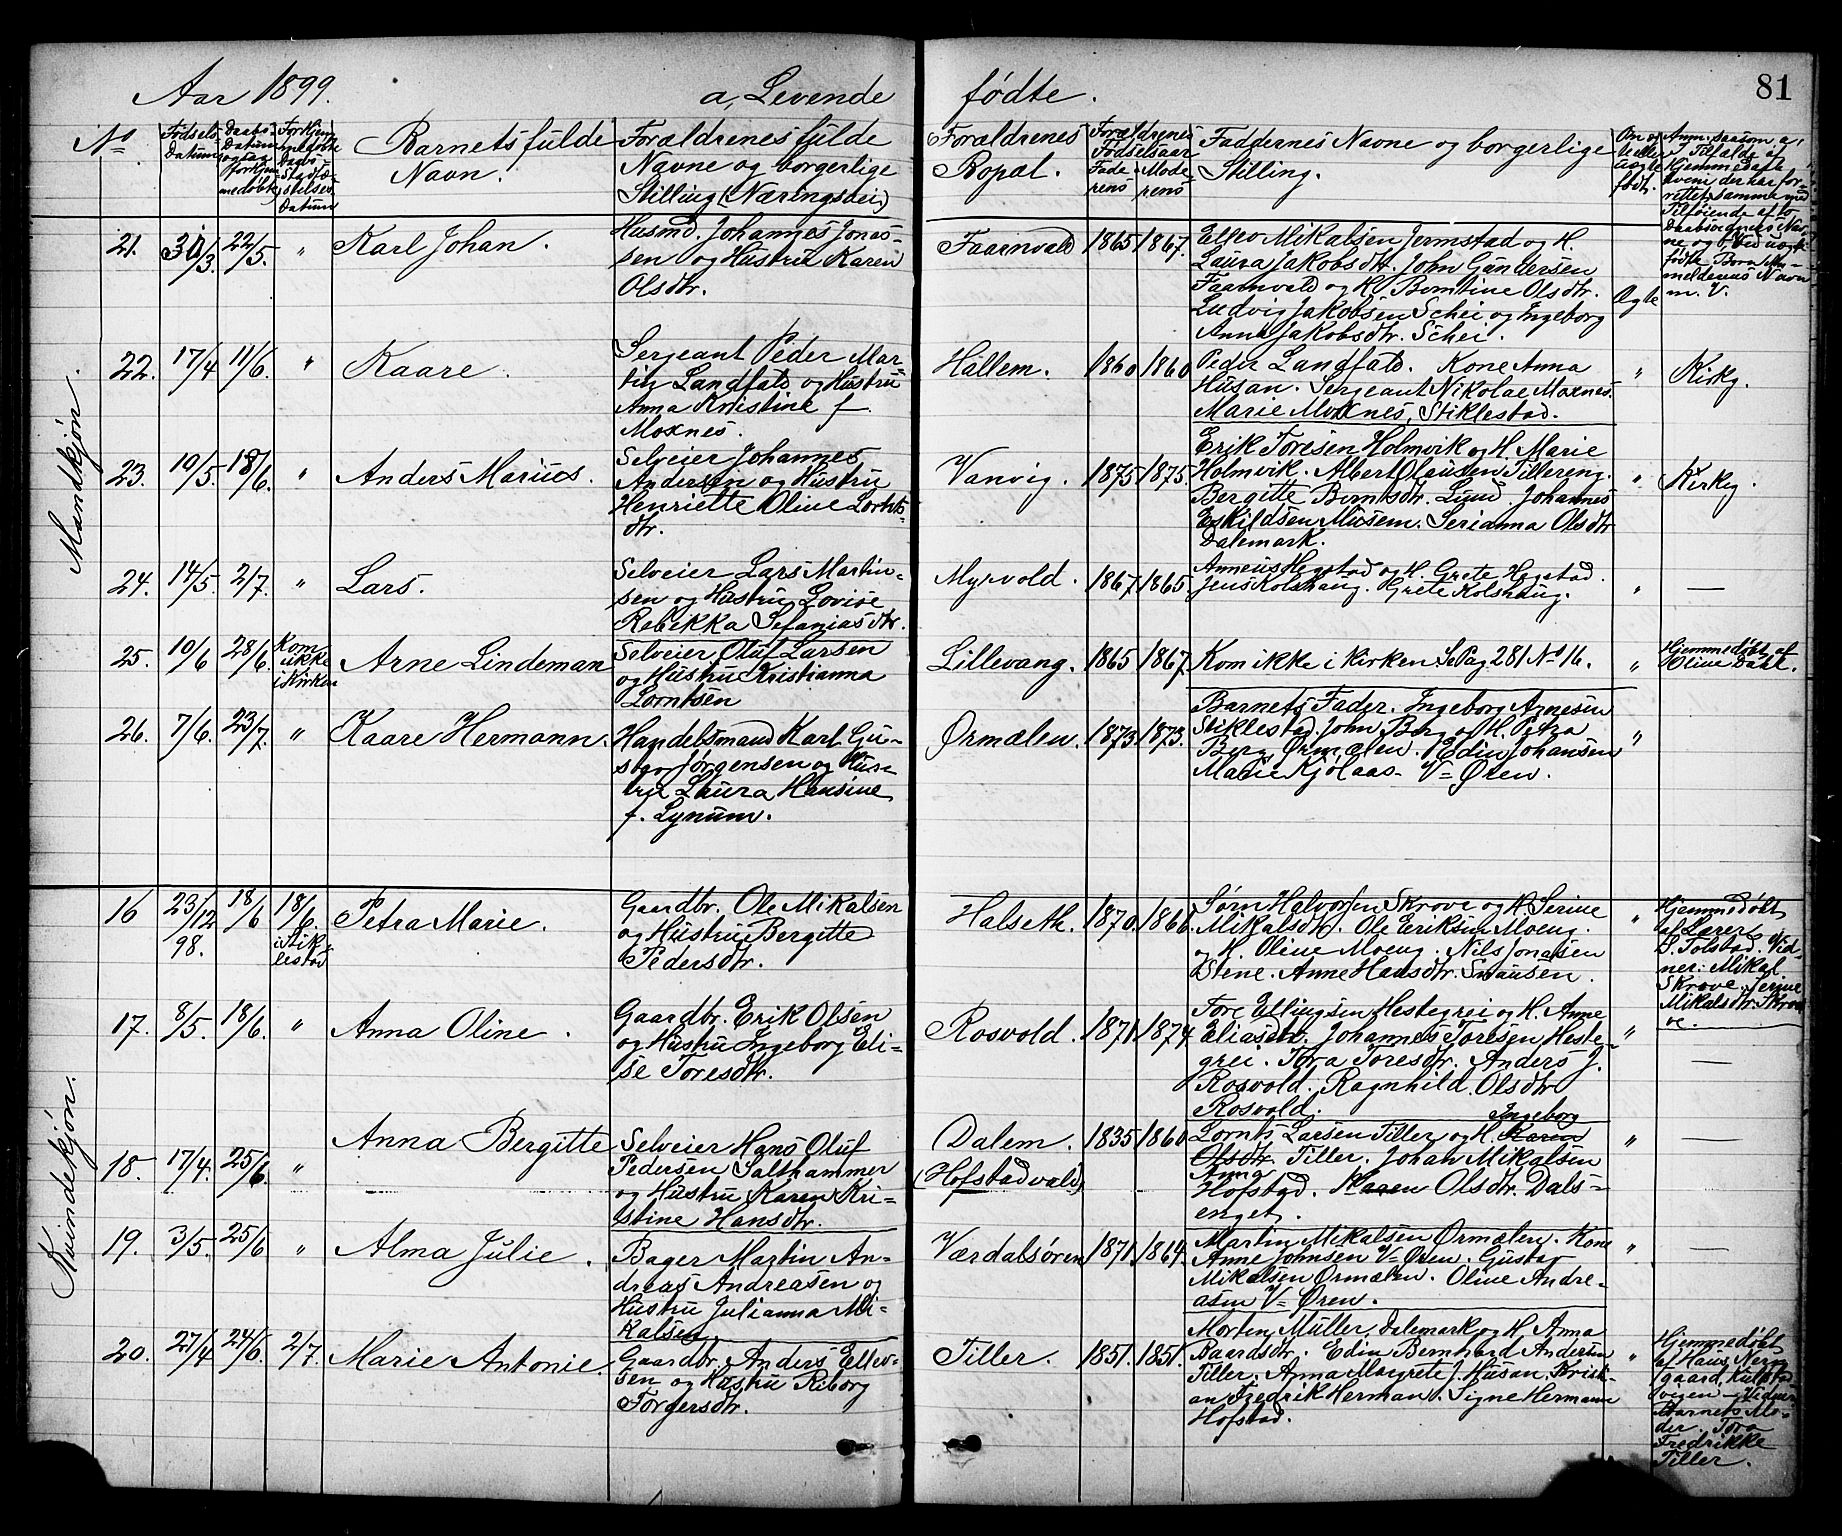 Aar 1899. a, Levende fødte. 81
No
Fødsels-
Datum
Daabs-
Datum
For Hjem-
medøbte
Daabs
Stadfæ-
stelses-
Datum
Barnets fulde
Navn.
Forældrenes fulde
Navne og borgerlige
Stilling (Næringsvei)
Forældrenes
Bopæl.
Forældrenes
Fødselsaar
Fade-
rens
Mode-
rens
Faddernes Navne og borgerlige
Stilling.
Om eg-
te eller
uægte
født.
Mandkjøn.
21. 31/3 22/5. " Karl Johan.
Husmd. Johannes Jonas-
sen og Hustru Karen
Olsdtr.
Faarnvald 1865 1867.
Ellev Mikalsen Jermstad og H.
Laura Jakobsdtr. John Gundersen
Faarnvald og H. Berntine Olsdtr.
Ludvig Jakobsen Schei og Ingeborg
Anna Jakobsdtr. Schei.
Ægte
22. 17/4 11/6. " Kaare.
Sergeant Peder Mar-
tin Landfald og Hustru
Anna Kristine f.
Moxnes.
Hallem. 1860 1860
Peder Landfald. Kone Anna
Husan. Sergeant Nikolae Moxnes.
Marie Moxnes, Stiklestad.
" Kirkg.
23. 10/5. 18/6. " Anders Marius.
Selveier Johannes
Andersen og Hustru
Henriette Oline Lornts-
dtr.
Vanvig. 1875 1875.
Erik Toresen Holmvik og H. Marie
Holmvik. Albert Olausen Tillereng.
Bergitte Berntsdtr. Lund. Johannes
Eskildsen Musem. Serianna Olsdtr
Dalemark.
" Kirkg.
24. 14/5. 2/7. " Lars.
Selveier Lars Martin-
sen og Hustru Lovise
Rebekka Sefaniasdtr.
Myrvold. 1867. 1865.
Anneus Hegstad og H. Grete Hegstad.
Jens Kolshaug. Grete Kolshaug.
" —
25. 10/6 28/6. Kom
ikke
i Kirken
Arne Lindeman
Selveier Oluf Larsen
og Hustru Kristianna
Lorntsen
Lillevang. 1865 1867.
Kom ikke i Kirken Se Pag 281 No 16.
" Hjemmedøbt af
Oline Dahl.
26. 7/6. 23/7. " Kaare Hermann.
Handelsmand Karl Gu-
stav Jørgensen og Hus-
tru Laura Hansine
f. Lynum.
Ørmælen. 1873. 1873.
Barnets Fader. Ingeborg Arnesen
Stiklestad. John Berg og H. Petra
Berg Ørmælen. Edin Johansen
Marie Kjølaas. V= Øren.
"
Kvindekjøn.
16 23/12
98.
18/6 18/6.
i Stik-
lestad
Petra Marie.
Gaardbr. Ole Mikalsen
og Hustru Bergitte
Pedersdtr.
Halseth. 1870. 1866.
Søren Halvorsen Skrove og H. Serine
Mikalsdtr. Ole Eriksen Moeng.
og H. Oline Moeng. Nils Jonasen
Stene. Anne Hansdtr. Snausen.
" Hjemmedøbt
af Lærer
S. Tolstad. Vid-
ner: Mikal
Skrove. Serine
Mikalsdtr. Skro-
ve.
17. 8/5. 18/6. " Anna Oline.
Gaardbr. Erik Olsen
og Hustru Ingeborg Eli-
se Toresdtr.
Rosvold. 1871. 1874
Tore Ellingsen Hestegrei og H. Anne
Eliasdtr. Johannes Toresen Heste-
grei. Tora Toresdtr. Anders J.
Rosvold. Ragnhild Olsdtr
Rosvold.
" —
18. 17/4. 25/6. " Anna Bergitte
Selveier Hans Oluf
Pedersen Salthammer
og Hustru Karen Kri-
stine Hansdtr.
Dalem.
(Hofstadvald)
1835 1860
Ingeborg
Lornts Larsen Tiller og H. Karen
Olsdtr. Tiller. Johan Mikalsen
Anna
Hofstad. Karen Olsdtr. Dals-
enget.
" —
19. 3/5. 25/6 " Alma Julie.
Bager Martin An-
dreas Andreasen og
Hustru Julianna Mi-
kalsen
Værdalsøren 1871. 1864.
Martin Mikalsen Ørmælen. Kone
Anne Johnsen V= Øren. Gustav
Mikalsen Ørmælen. Oline Andre-
asen V= Øren.
" —
20. 27/4 24/6. 2/7. Marie Antonie.
Gaardbr. Anders Ellev-
sen og Hustru Riborg
Torgersdtr.
Tiller. 1851. 1851.
Morten Müller. Dalemark og H. Anna
Baardsdtr. Edin Bernhard Andersen
Tiller. Anna Margrete J. Husan. Krist-
ian Fredrik Herman. Signe Hermann
Hofstad.
" Hjemmedøbt
af Hans Nern
gaard,
vigen — Vidner
Barnets Mo-
der Tora
Fredrikke
Tiller.